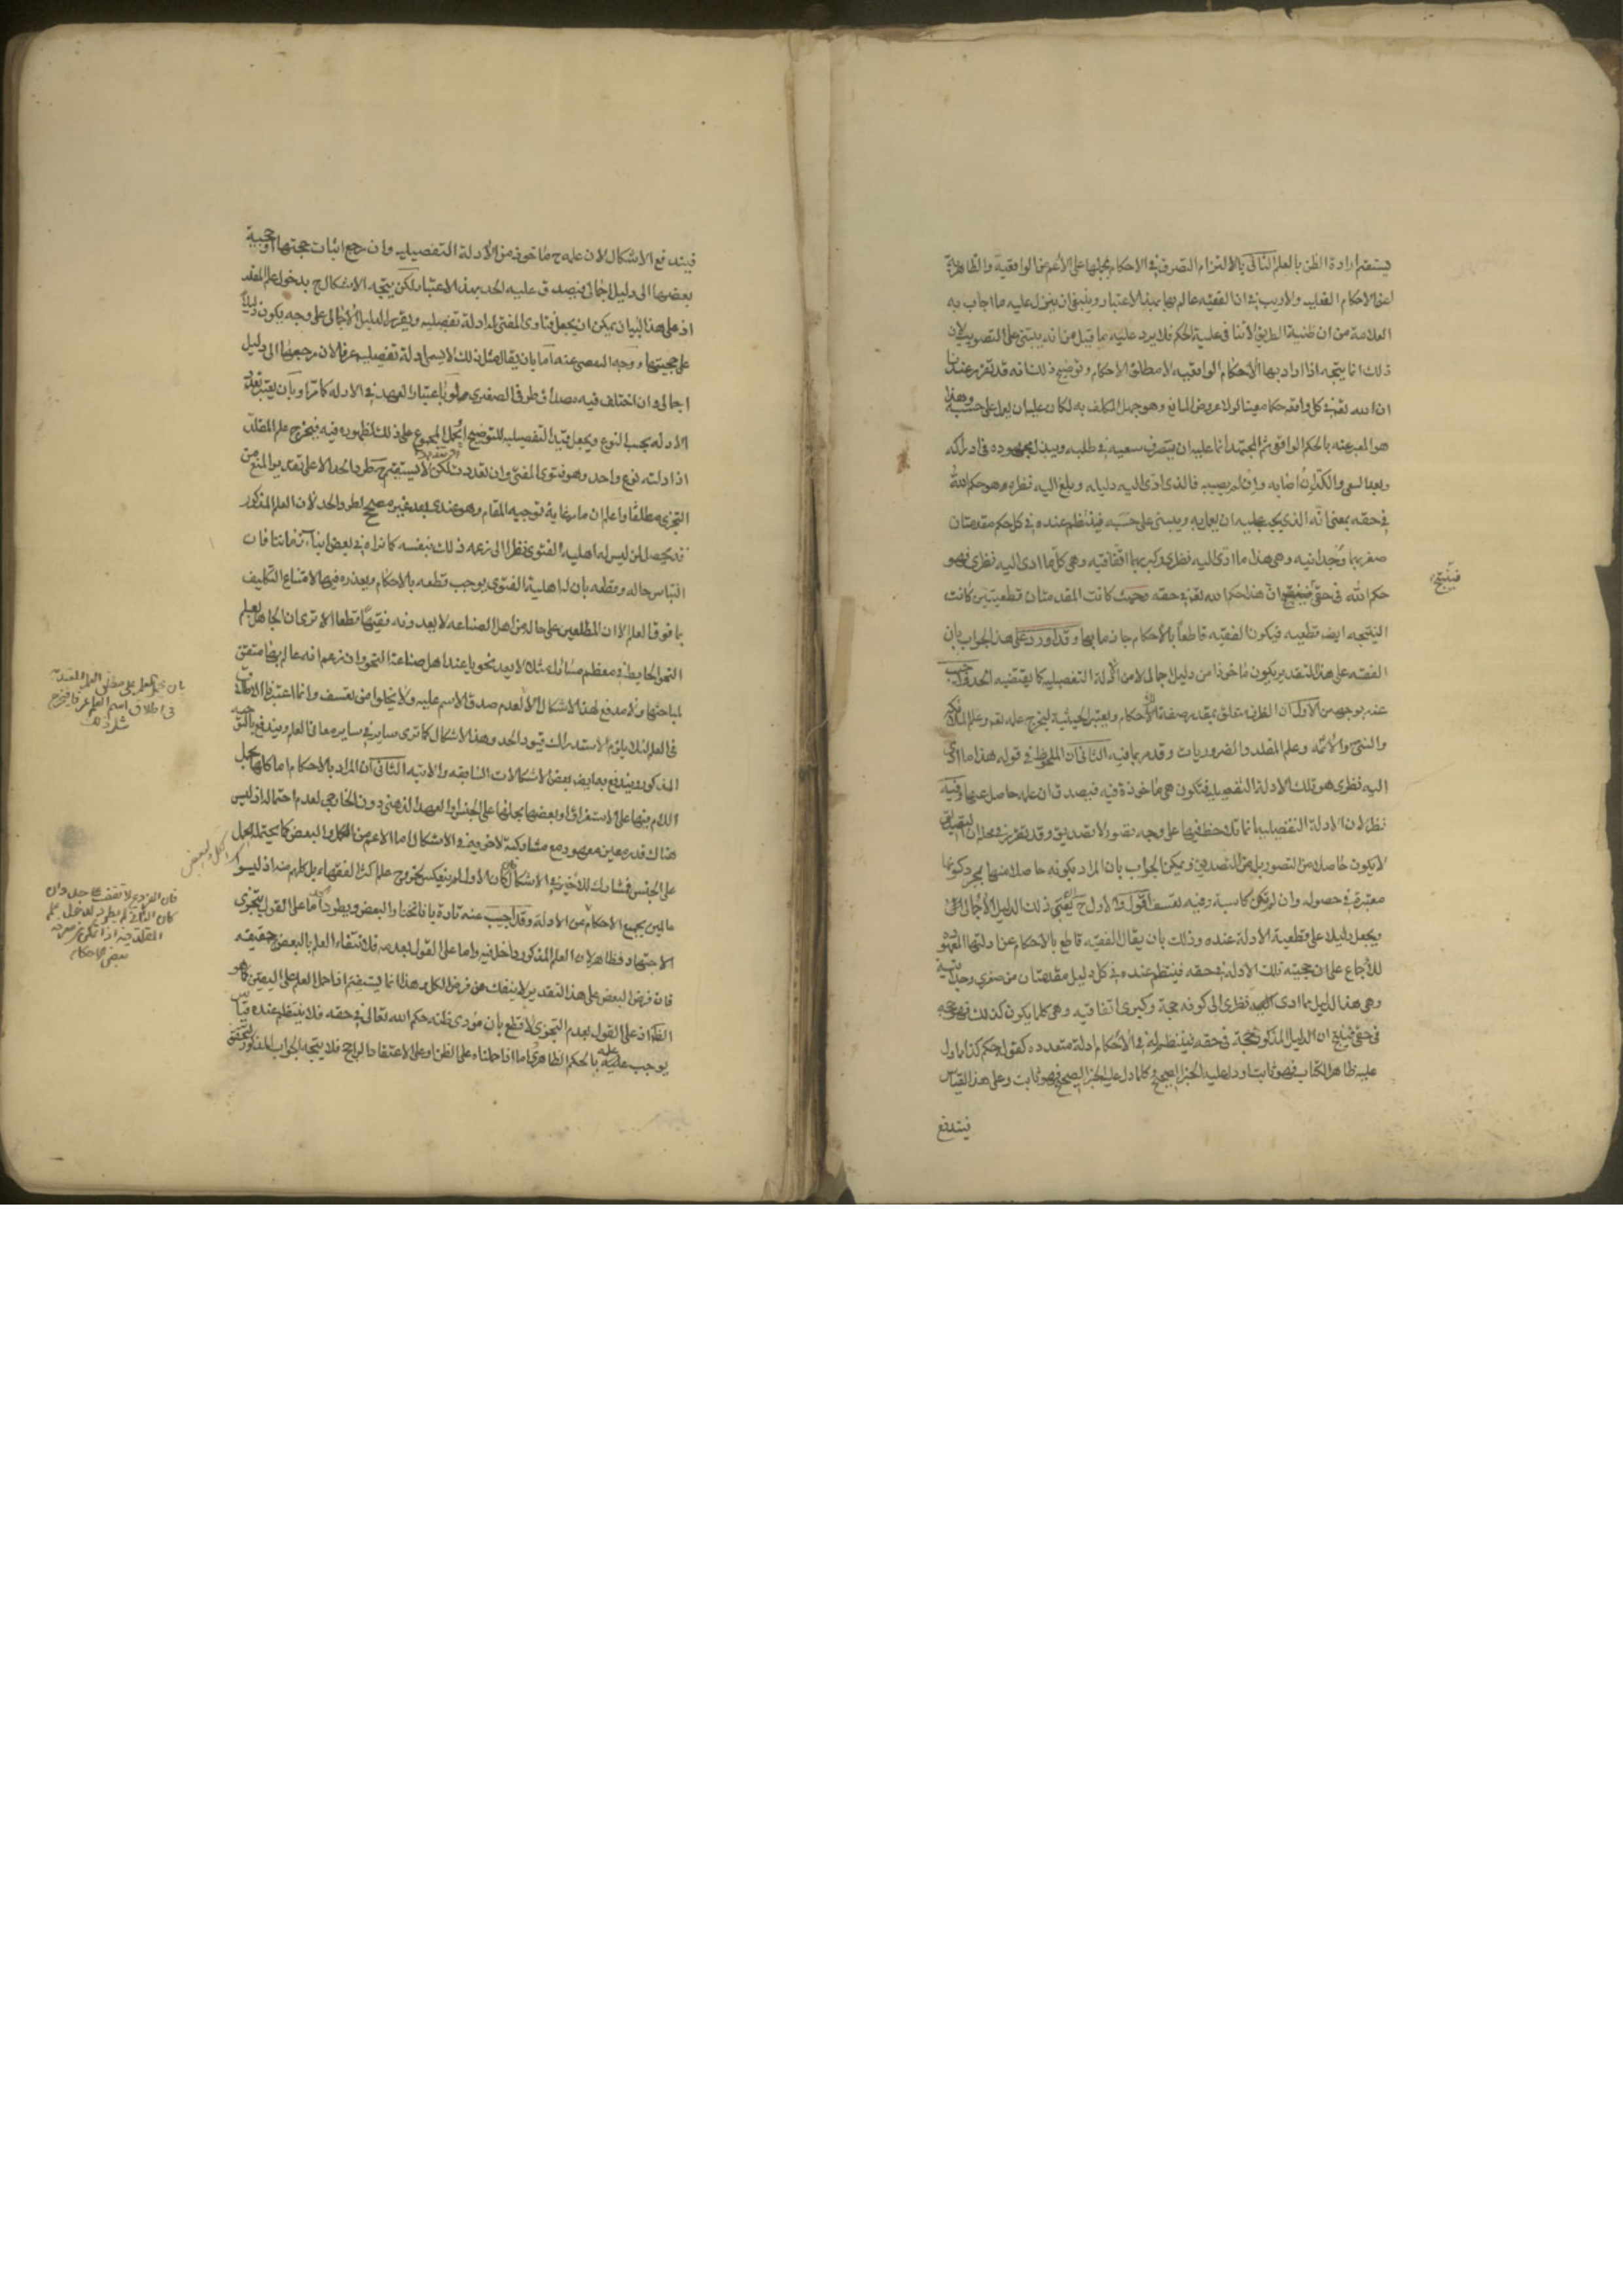 يستقيم ارادة الظن بالعلم الثانى بالالتزام التصرف فى الاحكام بحملها على الأعم من الواقعية والظاهرية
اعنى الاحكام الفعلية ولا ريب فى ان الفقيه عالم بها بهذا الاعتبار وينبغى ان ينزل عليه ما اجاب به
العلامة من ان ظنية الطريق لا تنافى علمية الحكم فلا يرد عليه ما قيل من انه يبتنى على التصويب لان
ذلك انما يتجه اذا اراد بها الأحكام الواقعيه لا مطلق الاحكام وتوضيح ذلك انه قد تقرر عندنا
ان لله تعالى فى كل واقعة حكما معينا لولا عروض المانع وهو جهل المكلف به لكان عليه ان يعمل على حسبه وهذا
هو المعبر عنه بالحكم الواقعى ثم المجتهد انما عليه ان يتصرف سعيه فى طلبه ويبذل مجهوده فى ادراكه
وبعد السعى والكد ان اصابه وان لم يصبه فالذى ادى اليه دليله وبلغ اليه نظره هو حكم الله
فى حقه بمعنى انه الذى يجب عليه ان يعمل به ويبنى على حسبه فينتظم عنده فى كل حكم مقدمتان
صغريهما وجدانيه وهى هذا ما ادى اليه نظرى وكبريهما اتفاقيه وهى كل ما ادى اليه نظرى فهو
حكم الله فى حقى فينتج ان هذا حكم الله تعالى فى حقه وحيث كانت المقدمتان قطعيتين كانت
فينتج
النتيجه ايضا قطعيه فيكون الفقيه قاطعا بالأحكام جازما بها وقد اورد على هذا الجواب بان
الفقه على هذا التقدير يكون مأخوذا من دليل اجمالى لا من الأدلة التفصيليه كما يقتضيه الحد واجيب
عنه بوجهين الأول ان الظرف متعلق بمقدر صفة للأحكام ويعتبر الحيثية ليخرج علمه تعالى وعلم الملائكة
والنبى والائمه وعلم المقلد والضروريات وقد مر بما فيه الثانى ان الملحوظ فى قوله هذا ما ادى
اليه نظرى هو تلك الأدلة التفصيليه فتكون هى مأخوذة فيه فيصدق ان علمه حاصل عنها وفيه
نظر لان الادلة التفصيلية انما تلاحظ فيها على وجه تصور لا تصديق وقد تقرر فى محله ان التصديق
لا يكون حاصلا من التصور بل من التصديق ويمكن الجواب بان المراد بكونه حاصلا عنها مجرد كونها
معتبرة فى حصوله وان لم تكن كاسبة وفيه تعسف اقول والاولى ح ان يبقى ذلك الدليل الأجمالى
ويجعل دليلا على قطعية الأدلة عنده وذلك بان يقال الفقيه قاطع بالاحكام عن ادلتها المعهوده
للأجماع على ان حجيته تلك الأدلة فى حقه فينتظم عنده فى كل دليل مقدمتان من صغرى وجدانية
وهى هذا الدليل مما ادى اليه نظرى الى كونه حجة وكبرى اتفاقيه وهى كلما يكون كذلك فهو حجه
فى حقى فينتج ان الدليل المذكور حجة فى حقه فينتظم له فى الأحكام ادلة متعدده كقوله حكم كذا ما دل
عليه ظاهر الكتاب فهو ثابت او دل عليه الخبر الصحيح وكلما دل عليه الخبر الصحيح فهو ثابت وعلى هذا القياس
فيندفع
فيندفع الاشكال لان علمه ح مأخوذ من الأدلة التفصيليه وان رجع اثبات حجيتها او حجية
بعضها الى دليل اجمالى فيصدق عليه الحد بهذا الاعتبار لكن يتجه الاشكال ح بدخول علم المقلد
اذ على هذا البيان يمكن ان يجعل فتاوى المفتى له ادلة تفصيليه ويقرر الدليل الأجمالى على وجه يكون دليلاً
على حجيتها ووجه التفصى عنه اما بان يقال مثل ذلك لا يسمى ادلة تفصيليه عرفا لان مرجعها الى دليل
اجمالى وان اختلف فيه مصداق طرفى الصغرى او باعتبار العهد فى الادله كما مر او بان يعتبر تعدد
الادله بحسب النوع ويجعل قيد التفصيليه للتوضيح او لحمل الجموع على ذلك لظهوره فيه فيخرج علم المقلد
اذ ادلته نوع واحد وهو فتوى المفتى وان تعددت لكن لا يستقيم ح طرد الحد الا على تقدير المنع من
التجزى مطلقا واعلم ان ما مر غاية توجيه المقام وهو عندى بعد غير مصحح لطرد الحد لان العلم المذكور
قد يحصل لمن ليس له اهلية الفتوى نظرا الى زعمه ذلك بنفسه كما نراه فى بعض ابناء زماننا فان
التباس حاله وقطعه بان له اهلية الفتوى يوجب قطعه بالاحكام ويعذر فيها لامتناع التكليف
بما فوق العلم الا ان المطلعين على حاله من اهل الصناعه لا يعدونه فقيها قطعا الا ترى ان الجاهل بعلم
النحو الخابط فى معظم مسائله لا يعد نحويا عند اهل صناعة النحو وان زعم انه عالم بها متقن
لمباحثها ولا مدفع لهذا الاشكال الا لعدم صدق الاسم عليه ولا يخلو من تعسف وانما اعتبرنا الاطلاق
بان نحمل العلم على
فى اطلاق اسم العلم عرفا فيخرج
مثل ذلك
فى العلم لئلا يلزم الاستدراك قيود الحد وهذا الاشكال كما ترى سايرا فى سايره معانى العلم ويندفع بالتوجيه
المذكور ويندفع به ايضا بعض الاشكالات السابقه والاتيه الثانى ان المراد بالاحكام اما كلها بحمل
اللام فيها على الاستغراق او بعضها بحملها على الجنس او العهد الذهنى دون الخارجى لعدم احتماله اذ ليس
هناك قدر معين معهود مع مشاركته لاخرويه فى الاشكال اما الاعم من الكل والبعض كما يحتمله الحمل
على الجنس فمشارك للأخير فى الاشكال فان كان الاول لم ينعكس لخروج علم اكثر الفقهاء بل كلهم منه اذ ليسوا
الكل والبعض
عالمين بجميع الاحكام عن الادلة وقد اجيب عنه تارة بانا نختار البعض ويطرد اما على القول بتجزى
فان الفروع لا تقف على حد وان
كان الثانى لم يطرد لدخول علم
المقلد فيه اذا تمكن من معرفة
بعض الاحكام
الاجتهاد فظاهر لان العلم المذكور داخل فيه واما على القول بعدمه فلانتفاء العلم بالبعض حقيقه
فان فرض البعض على هذا التقدير لا ينفك عن فرض الكل وهذا انما يستقيم اذا حمل العلم على اليقين كما هو
الظاهر اذ على القول بعدم التجزى لا قطع بان مؤدى ظنه حكم الله تعالى فى حقه فلا ينتظم عنده قياس
يوجب علمه بالحكم الظاهرى اما اذا حملناه على الظن او على الاعتقاد الراجح فلا يتجه الجواب المذكور لتحقق